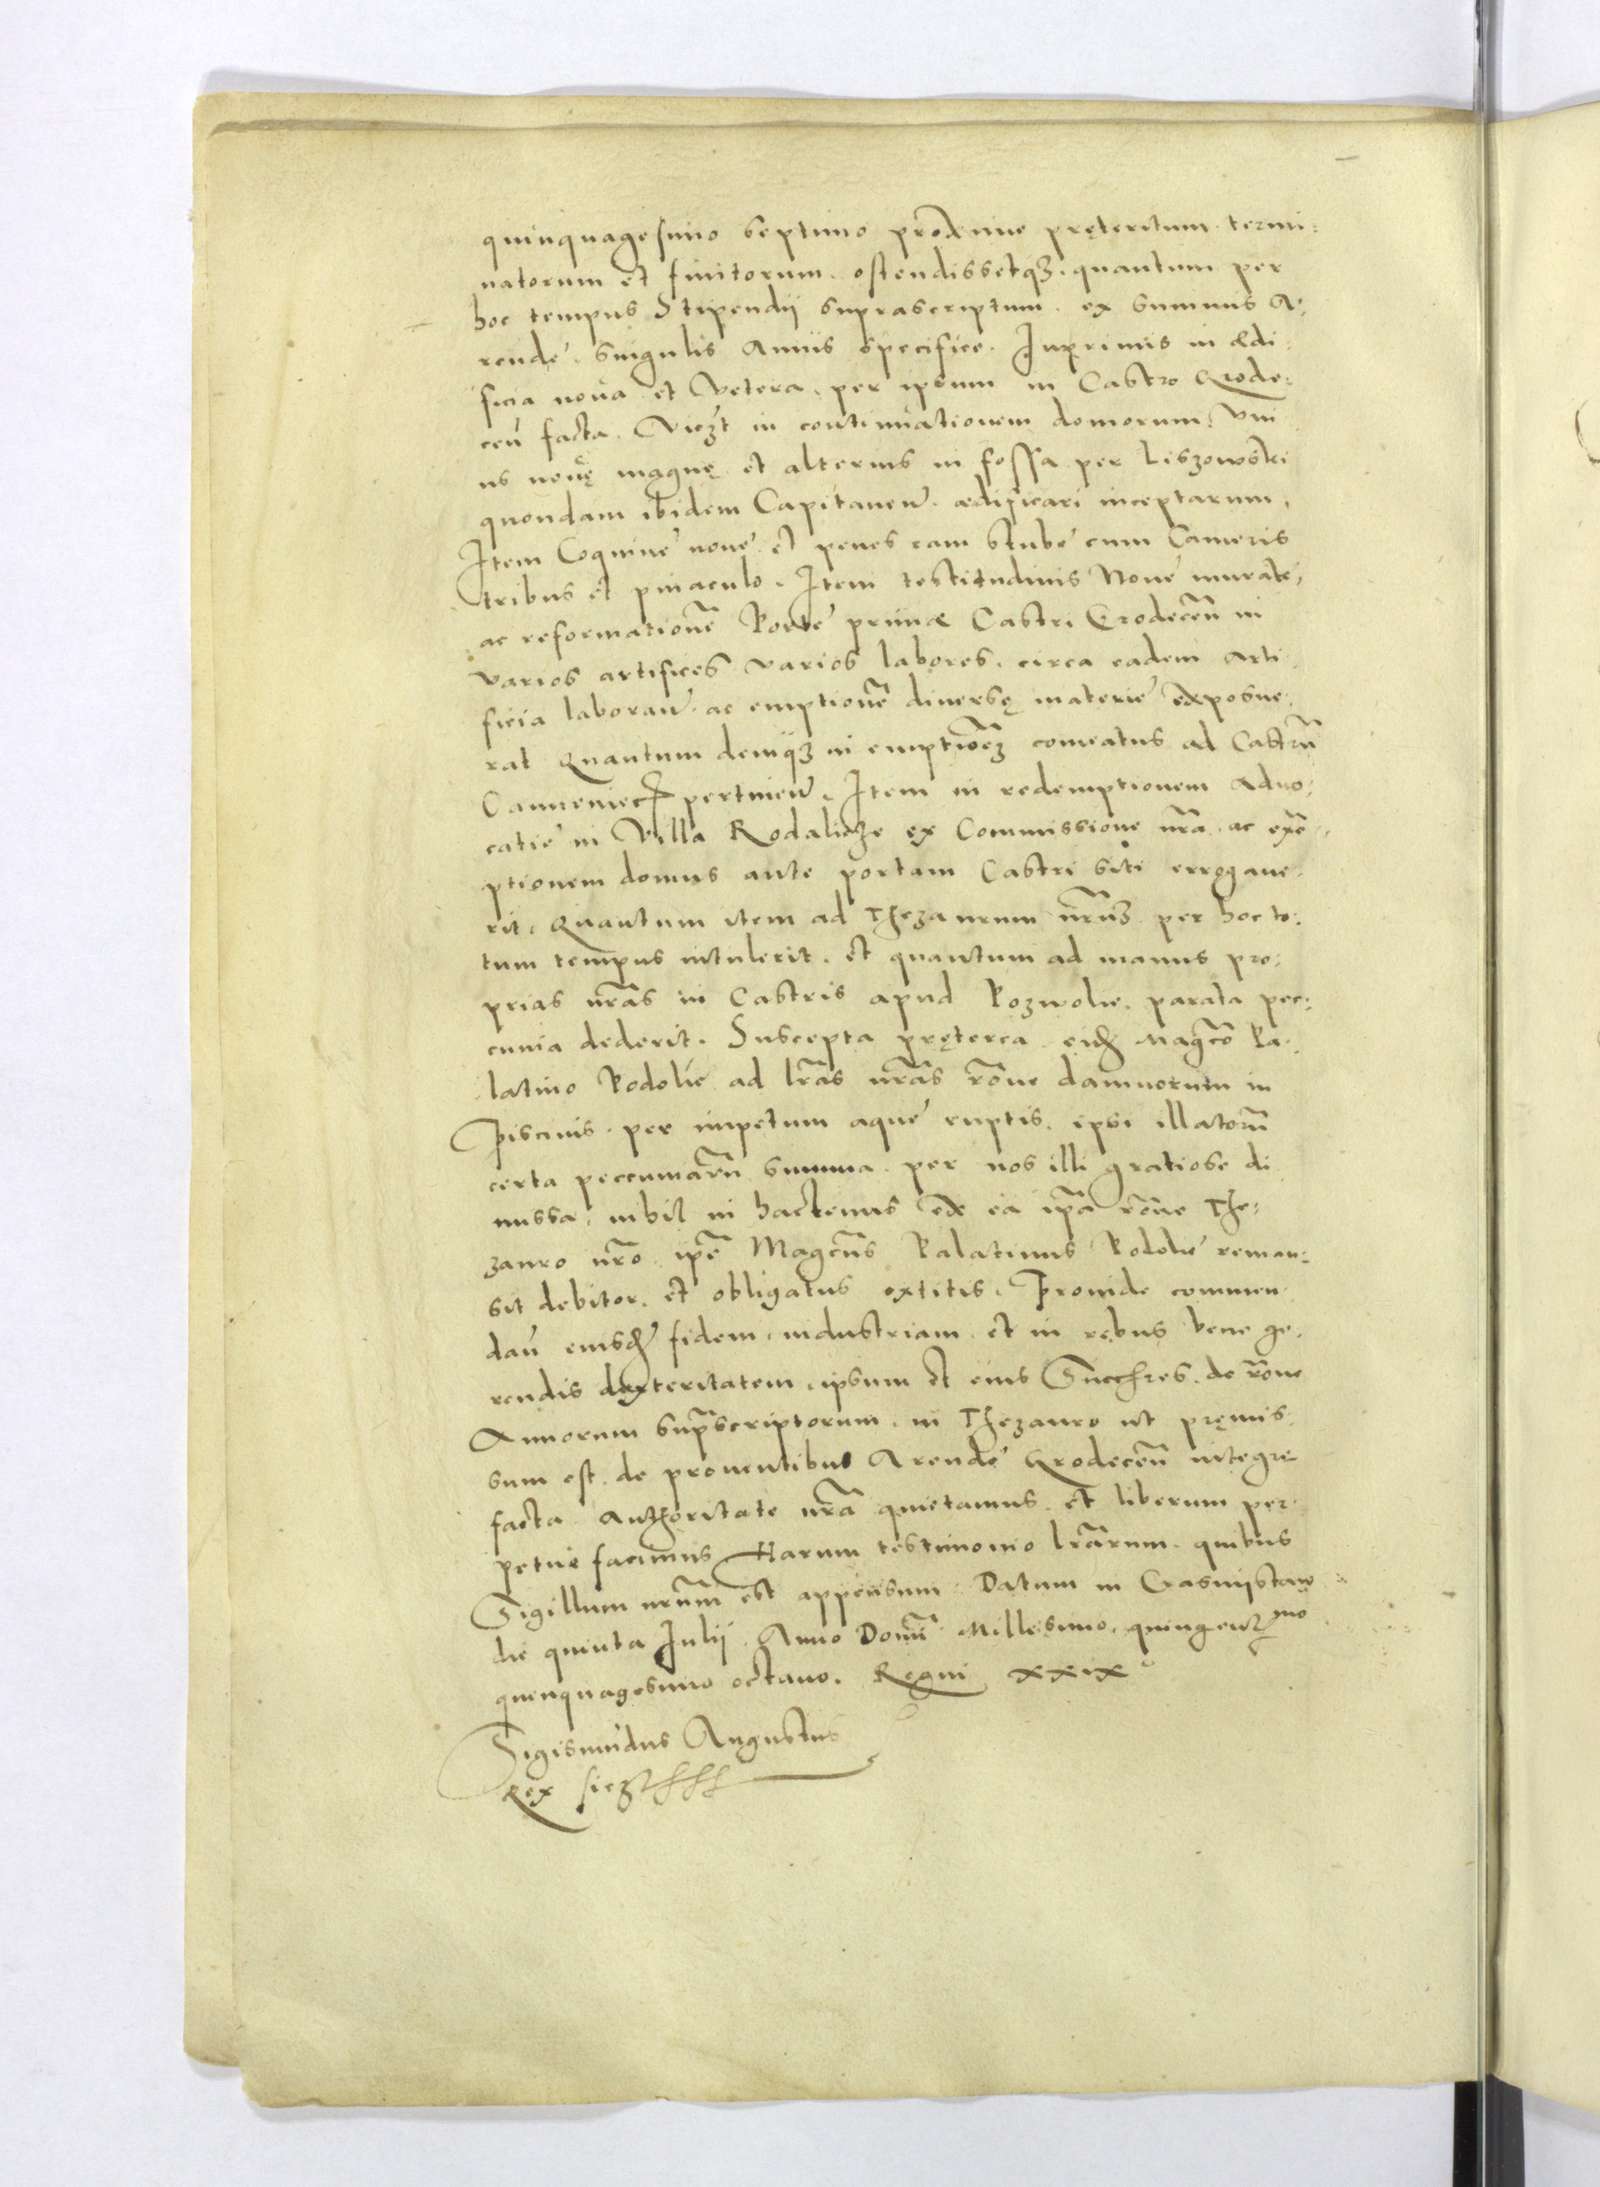 quinquagesimo septimo proxime pręteritum termi:
natorum et finitorum. ostendissetq3. quantum per
hoc tempus Stipendii suprascriptum. ex summis A:
rendę. singulis Annis specifice. Inprimis in ædi:
ficia nova et Vetera. per ipsum in Castro Grode:
ceñ facta. Vicz3t in continuationem domorum. Vni
us novę magnę et alterius in fossa per Liszowski
quondam ibidem Capitaneũ. ædificari inceptarum,
Item Coquinę novę et penes eam stubę cum Cameris
tribus et pinaculo. Item testitudinis Novę muratę,
ac reformationẽ Portę primæ Castri Grodeceñ in
varios artifices varios labores. circa eadem Arti
ficia laborañ. ac emptionẽ diversę materię exposue:
rat Quantum deniq3 in emptiõe3 comeatus ad Castrũ
Cameniecz pertineñ. Item in redemptionem Advo:
catię in Villa Rodaticze ex Commissione nr̃a ac exẽ:
ptionem domus ante portam Castri siti errogave:
rit. Quantum item ad Thezaurum nr̃um per hoc to:
tum tempus intulerit. et quantum ad manus pro:
prias nr̃as in Castris apud Pozwolie. parata pec:
cunia dederit. Suscepta pręterea eidẽ Mag̃co Pa:
latino Podolię ad lr̃as nr̃as rõne damnorum in
Piscinis per impetum aquę ruptis. ipsi illatorũ
certa peccuniarũ summa per nos illi gratiose di
missa. nihil in hactenus ex ea ip̃a rõne The:
zauro nr̃o ip̃e Mag̃cus Palatinus Podolię reman:
sit debitor. et obligatus extitis. Proinde commen
dañ eiusdẽ fidem, industriam et in rebus bene ge:
rendis dexteritatem, ipsum et eius Succ̃res. de rõne
Annorum sup̃scriptorum. in Thezauro ut pręmis:
sum est. de proventibus Arendę Grodeceñ integre
facta Authoritate nr̃a quietamus. et liberum per
petuę facimus Harum testimonio lr̃arum. quibus
Sigillum nr̃um est appensum. Datum in
die quinta Julii Anno Domĩ Millesimo, quingenᵐᵒ
quinquagesimo octavo. Regni xxix°
Sigismũdus Augustus
Rex